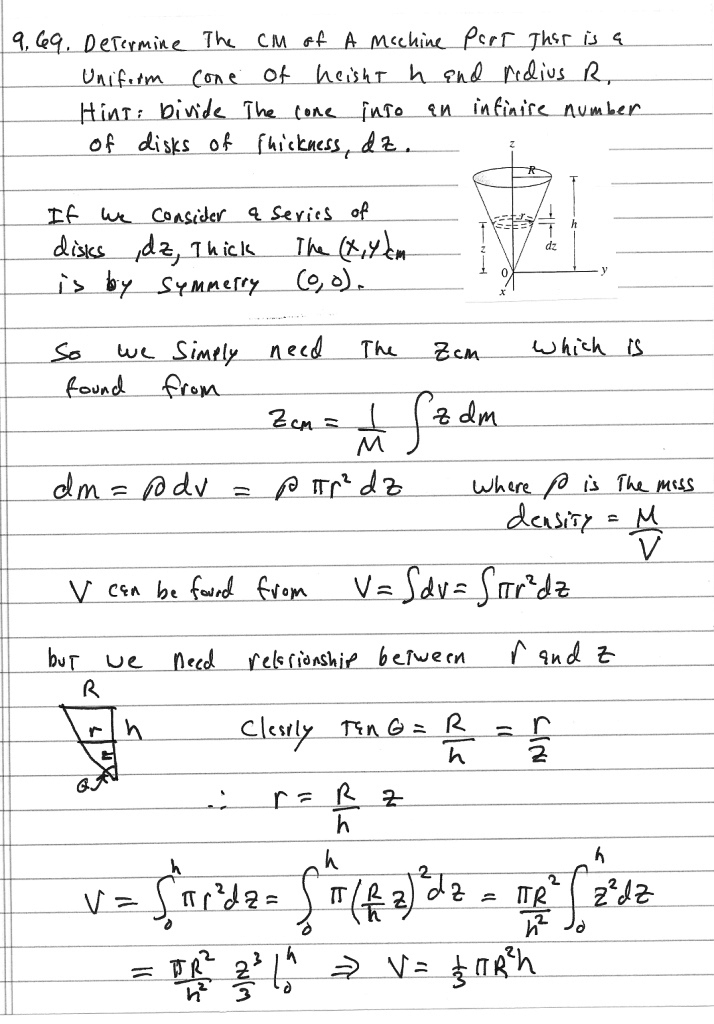 9.69. Determine The CM of A Machine Part That is a
Uniform cone of height h and radius R.
Hint: Divide The cone into an infinite number
of disks of thickness, dz.
z
R
r
h
z
dz
0
y
x
If we consider a series of
disks, dz, Thick The (x,y)cm
is by symmetry (0,0).
So we simply need The Zcm which is
found from
Zcm = 1/M ∫ z dm
dm = ρ dv = ρ πr² dz where ρ is The mass
density = M/V
V can be found from V = ∫dv = ∫πr²dz
but we need relationship between r and z
R
r h
z
θ
Clearly Tan θ = R/h = r/z
∴ r = R/h z
V = ∫₀ʰ πr²dz = ∫₀ʰ π(R/h z)²dz = πR²/h² ∫₀ʰ z²dz
= πR²/h² z³/3 |₀ʰ ⇒ V = ⅓ πR²h